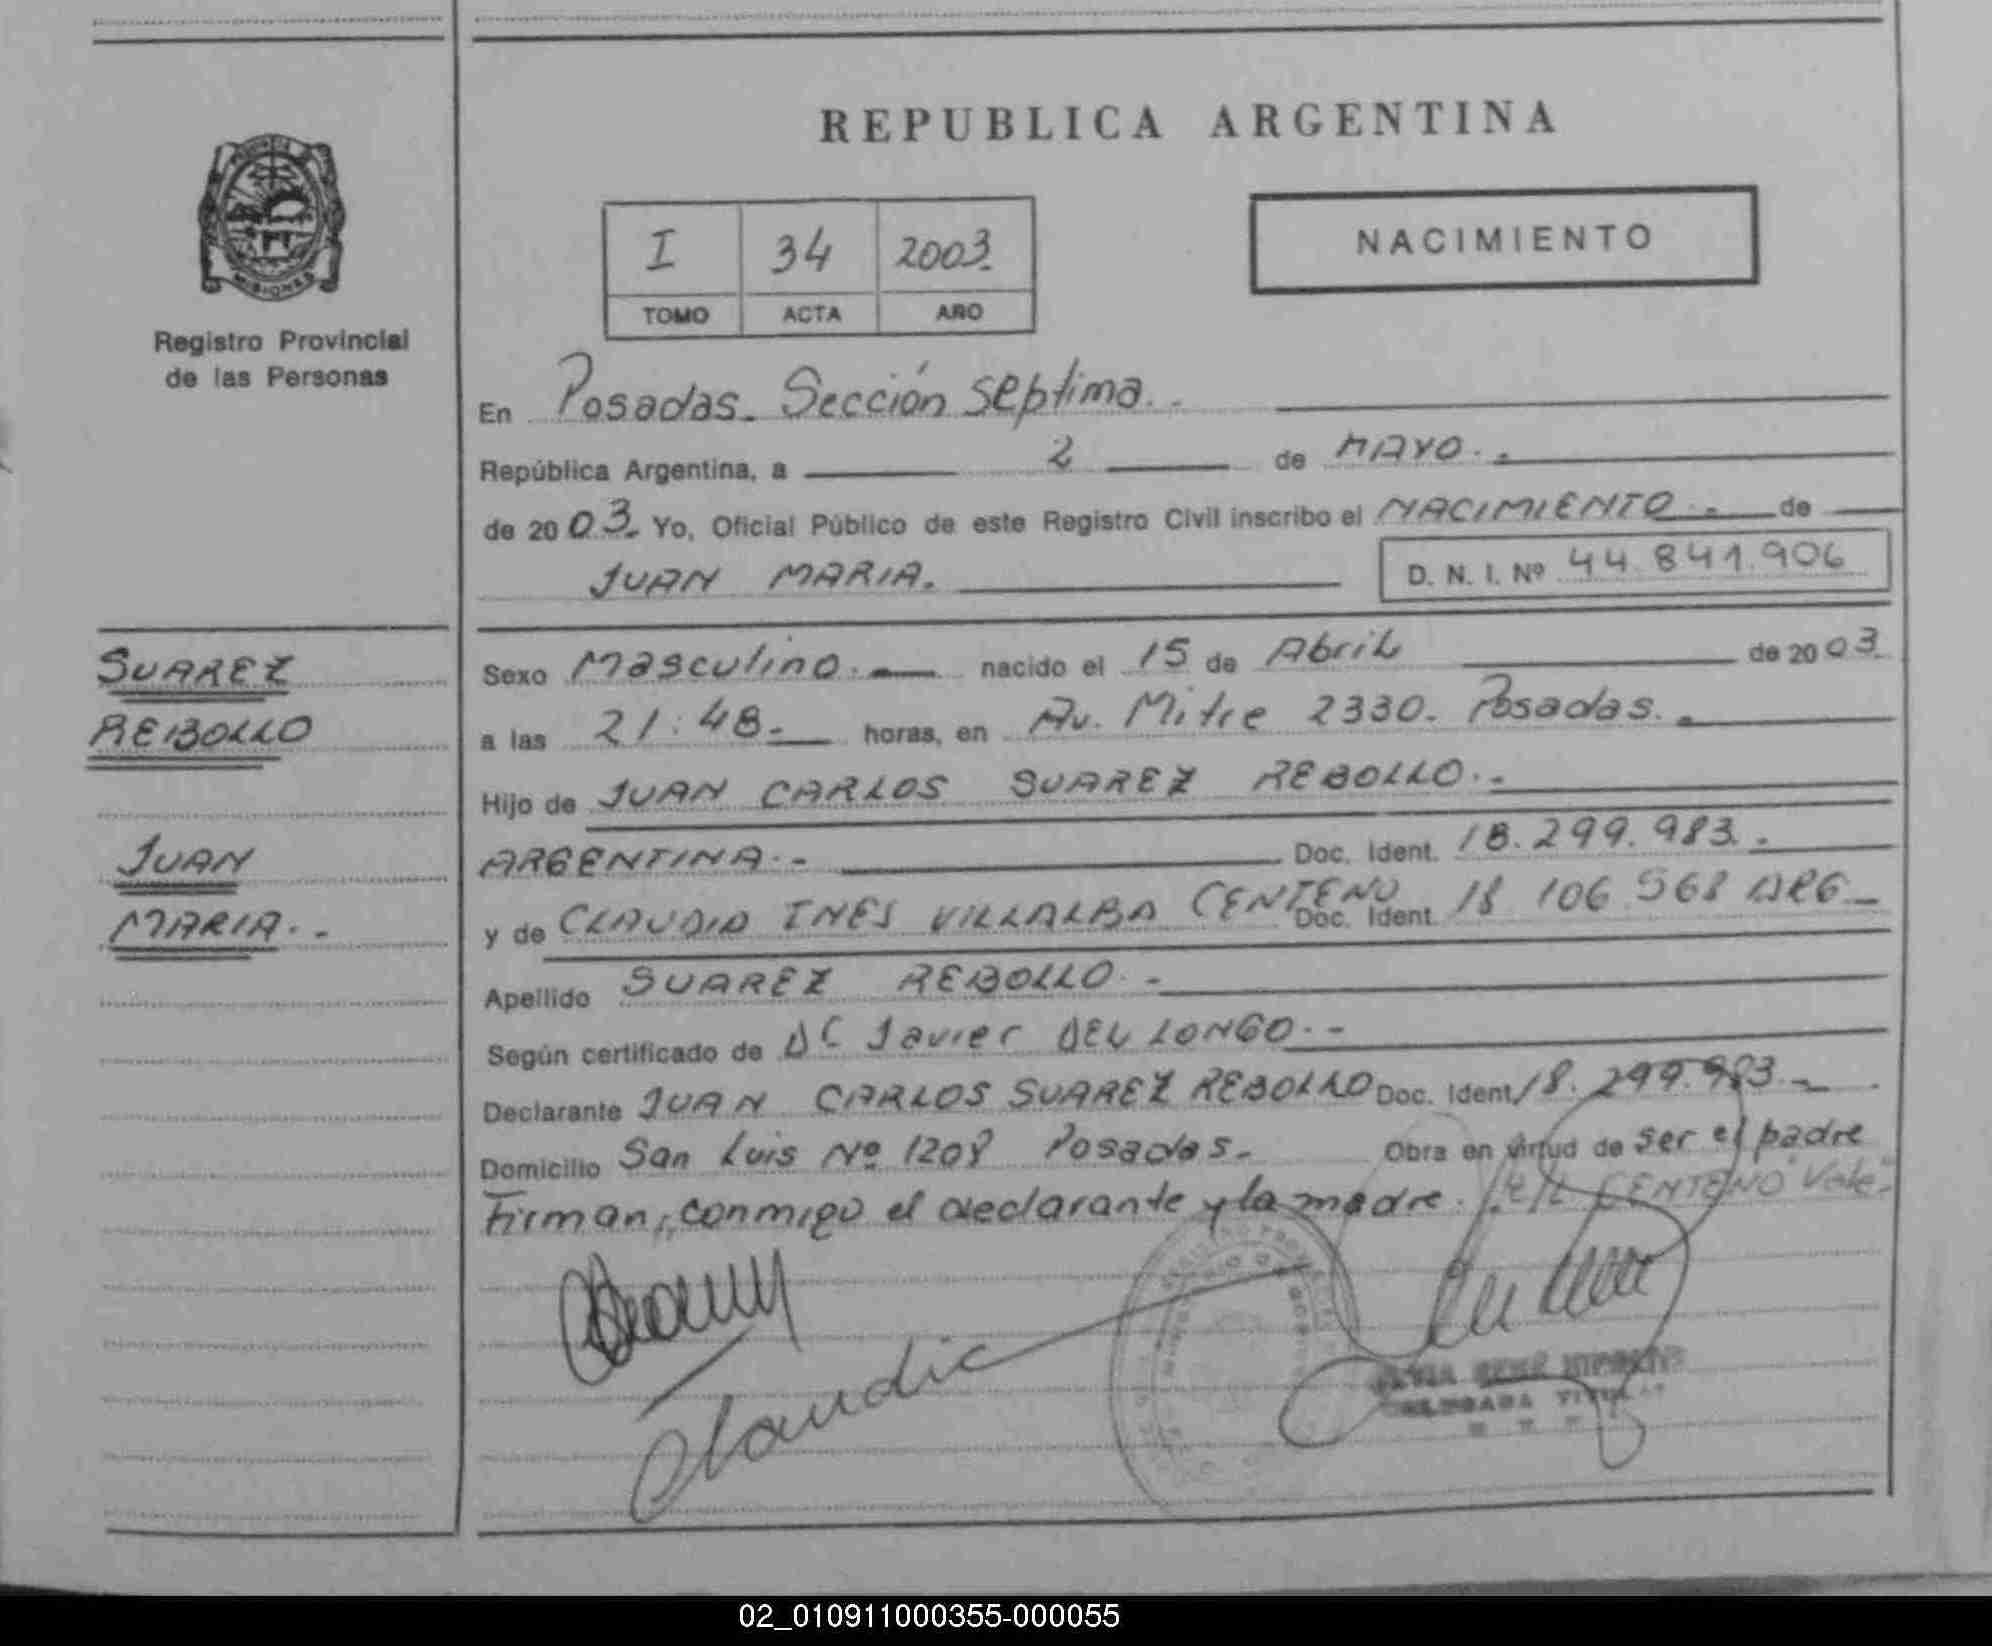 REPUBLICA ARGENTINA
MISIONES
Registro Provincial
de las Personas
I 34 2003.
TOMO ACTA AÑO
NACIMIENTO
En Posadas. Sección septima..
República Argentina, a 2 de MAYO..
de 2003. Yo, Oficial Público de este Registro Civil inscribo el NACIMIENTO.. de
JUAN MARIA.
D. N. I. Nº 44.841.906
SUAREZ
REBOLLO
JUAN
MARIA..
Sexo Masculino. nacido el 15 de Abril de 2003.
a las 21:48. horas, en Av. Mitre 2330. Posadas..
Hijo de JUAN CARLOS SUAREZ REBOLLO..
ARGENTINA.. Doc. Ident. 18.299.983..
y de CLAUDIA INES VILLALBA CENTENO Doc. Ident. 18 106 568 ARG
Apellido SUAREZ REBOLLO.
Según certificado de Dr Javier DEL LONGO..
Declarante JUAN CARLOS SUAREZ REBOLLO Doc. Ident. 18.299.983.
Domicilio San Luis Nº 1208 Posadas. Obra en virtud de ser el padre
Firman, conmigo el declarante y la madre. E/L CENTENO "Vale".
Claudia
DELEGADA TITULAR
02_010911000355-000055